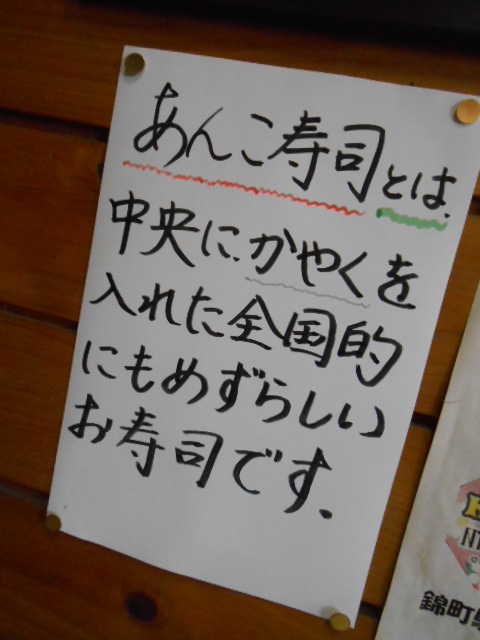 あんこ寿司とは、
中央に、かやくを
入れた全国的
にもめずらしい
お寿司です.
錦町